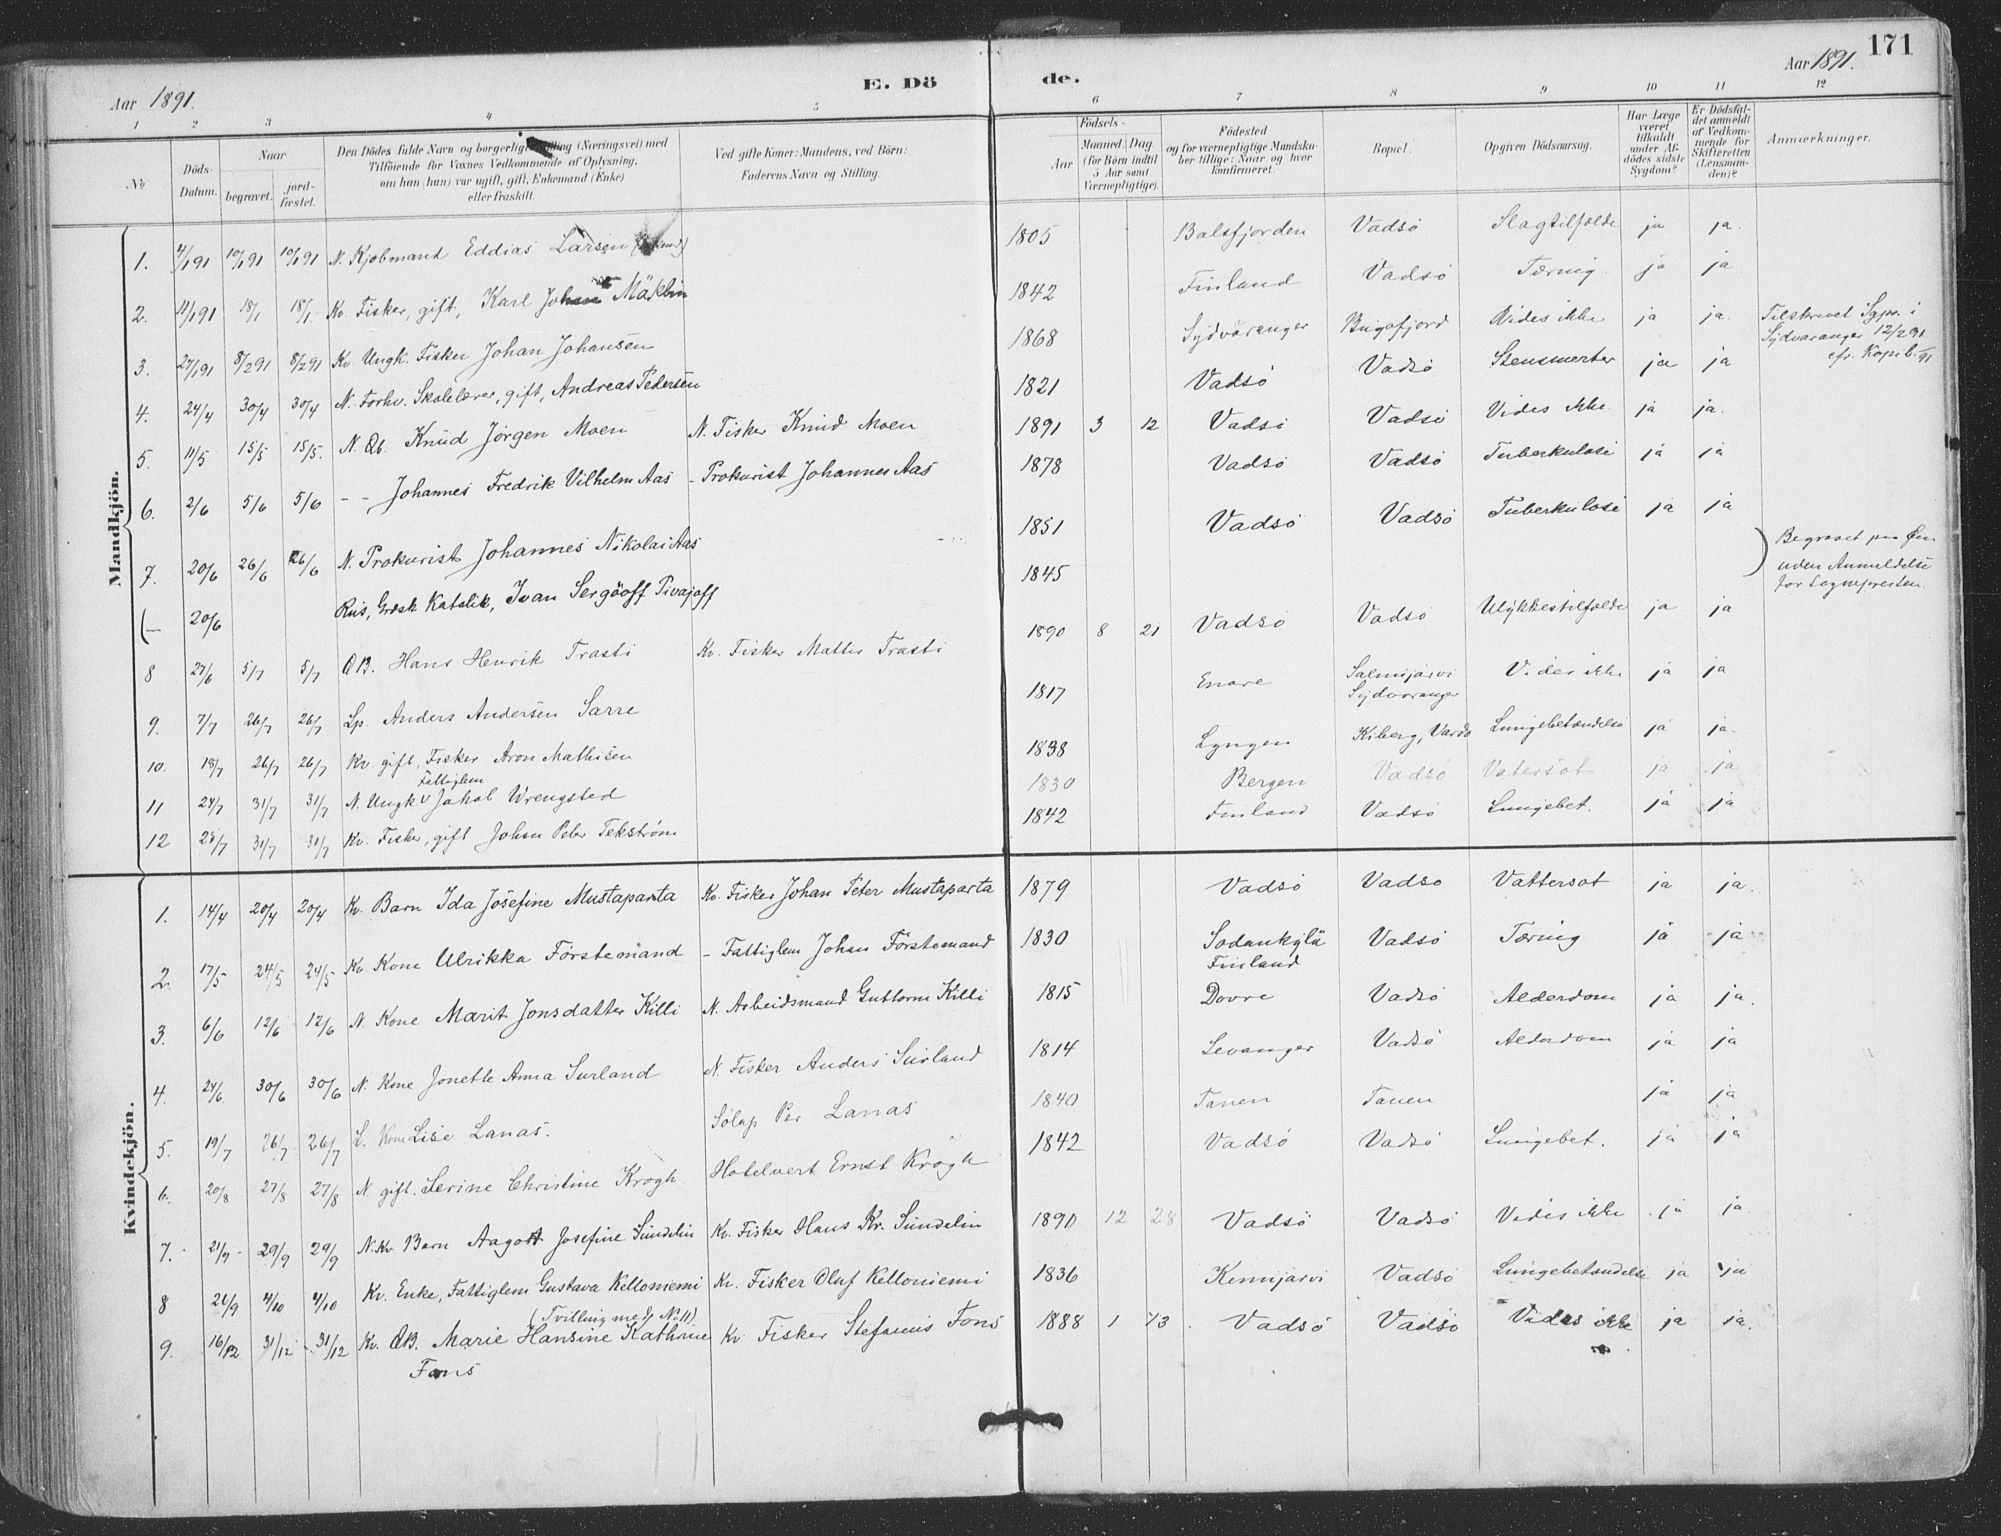 171
Aar 1891.
E. Dö
de.
Aar 1891.
1 2 3 4 5 6 7 8 9 10 11 12
No
Döds-Datum.
Naar
begravet.
jord-fæstet.
Den Dödes fulde Navn og borgerlig Stilling (Næringsvei) med
Tilföiende for Voxnes Vedkommende af Oplysning,
om han (hun) var ugift, gift, Enkemand (Enke)
eller fraskilt.
Ved gifte Koner: Mandens, ved Börn:
Faderens Navn og Stilling.
Födsels-
Aar
Maaned. Dag
(for Börn indtil
5 Aar samt
Værnepligtige).
Födested
og for værnepligtige Mandska-
ber tillige: Naar og hvor
konfirmeret.
Bopæl.
Opgiven Dödsaarsag.
Har Læge
været
tilkaldt
under Af-
dödes sidste
Sygdom?
Er Dödsfal-
det anmeldt
af Vedkom-
mende for
Skifteretten
(Lensman-
den)?
Anmærkninger.
Mandkjön.
1. 4/1 91 10/1 91 10/1 91 N. Kjøbmand Eddias Larsen 1805 Balsfjorden Vadsö Slagtilfælde ja ja.
2. 11/1 91 18/1 18/1 Kv. Fisker, gift, Karl Johan Mäkbin 1842 Finland Vadsö Tæring ja ja
3. 27/1 91 8/2 91 8/2 91 Kv. Ungk. Fisker Johan Johansen 1868 Sydvaranger Bugøfjord Vides ikke ja ja. Tilskrevet Sgpr. i
Sydvaranger 12/2 91
cfr. Kopib. 91
4. 24/4 30/4 30/4 N. Forhv. Skolelærer, gift, Andreas Pedersen 1821 Vadsö Vadsö Stensmerter ja ja
5. 11/5 15/5 15/5. N. Qb. Knud Jörgen Moen N. Fisker Knud Moen 1891 3 12 Vadsö Vadsö Vides ikke ja ja.
6. 2/6 5/6 5/6 - - Johannes Fredrik Vilhelm Aas - Prokurist Johannes Aas 1878 Vadsö Vadsö Tuberkulose ja ja
7. 20/6 26/6 26/6 N. Prokurist Johannes Nikolai Aas 1851 Vadsö Vadsö Tuberkulose ja ja
(- 20/6 Rus, Græsk Katolik, Ivan Sergöoff Pivajoff 1845 Begravet paa Øen
uden Anmeldelse
for Sognepresten.
8 27/6 5/7 5/7 QB. Hans Henrik Trasti Kv. Fisker Mattis Trasti 1890 8 21 Vadsö Vadsö Ulykkestilfælde ja ja
9. 7/7 26/7 26/7 Lp. Anders Andersen Sarre 1817 Enare Salmijarvi
Sydvaranger Vides ikke ja ja
10. 18/7 26/7 26/7 Kv. gift, Fisker Aron Mathisen 1838 Lyngen Kiberg, Vardö Lungebetændelse ja ja.
11 24/7 31/7 31/7 N. Ungk. Fattiglem Jakob Wrengsted 1830 Bergen Vadsö Vatersot ja ja
12 28/7 31/7 31/7 Kv. Fisker, gift Johan Peter Tekström 1842 Finland Vadsö Lungebet. ja ja
Kvindekjön.
1. 14/4 20/4 20/4 Kv. Barn Ida Josefine Mustaparta Kv. Fisker Johan Peter Mustaparta 1879 Vadsö Vadsö Vattersot ja ja.
2. 17/5 24/5 24/5 Kv Kone Ulrikka Förstemand - Fattiglem Johan Förstemand 1830 Sodankylä
Finland Vadsö Tæring ja ja
3. 6/6 12/6 12/6 N. Kone Marit Jonsdatter Killi N. Arbeidsmand Guttorm Killi 1815 Dovre Vadsö Alderdom ja ja.
4. 24/6. 30/6 30/6 N. Kone Jonette Anna Surland N. Fisker Anders Surland 1814 Levanger Vadsö Alderdom ja ja
5. 19/7 26/7 26/7 L. Kone Lise Lanas. Sølap Per Lanas 1840 Tanen Tanen ja ja
6. 20/8 27/8 27/8 N. gift. Serine Christine Krogh Hotelvert Ernst Krogh 1842 Vadsö Vadsö Lungebet. ja ja
7. 21/9 29/9 29/9 N.Kv Barn Aagot Josefine Sundelin Kv. Fisker Hans Kr. Sundelin 1890 12 28 Vadsö Vadsö Vides ikke ja ja
8 26/9 4/10 4/10 Kv. Enke, Fattiglem Gustava Kelloniemi Kv. Fisker Oluf Kelloniemi 1836 Kemijarvi Vadsö Lungebetændelse ja ja
(Tvilling med No 11)
9. 16/12 31/12 31/12 Kv. QB. Marie Hansine Kathrine Kv Fisker Stefanus Fons 1888 1 13 Vadsö Vadsö Vides ikke ja ja.
Fons